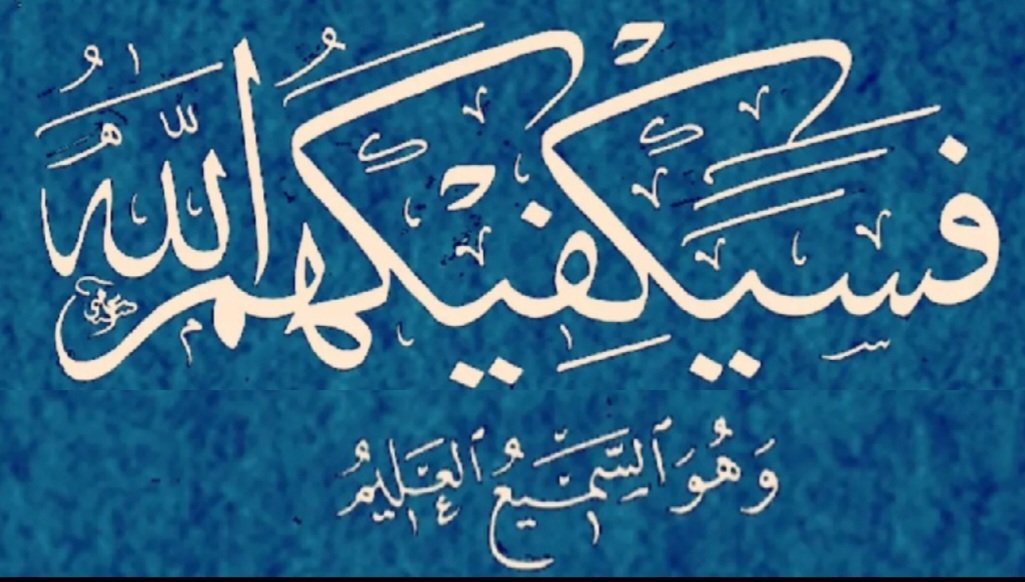 فَسَيَكْفِيكَهُمُ اللّٰهُ
وَهُوَ ٱلسَّمِيعُ ٱلْعَلِيمُ